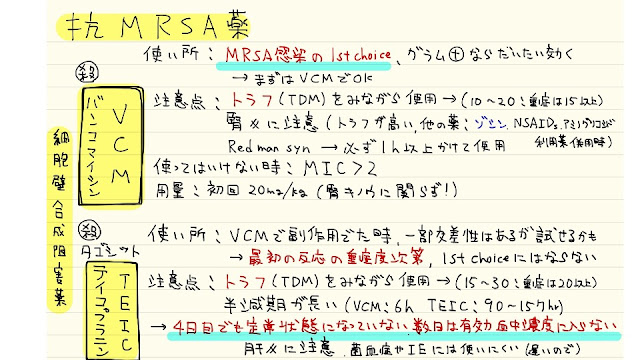 抗MRSA薬
使い所：MRSA感染の1st choice、グラム⊕ならだいたい効く
→まずはVCMでOK
殺
バンコマイシン
VCM
注意点：トラフ(TDM)をみながら使用→(10〜20：重症は15以上)
腎メに注意(トラフが高い、他の薬：ゾシン、NSAIDs、アミノグリコシド
利尿薬併用時)
Red man syn→必ず1h以上かけて使用
使ってはいけない時：MIC>2
用量：初回20mg/kg(腎キノウに関らず!)
細胞壁合成阻害薬
殺
タゴシット
テイコプラニン
TEIC
使い所：VCMで副作用でた時、一部交差性はあるが試せるかも
→最初の反応の重症度次第、1st choiceにはならない
注意点：トラフ(TDM)をみながら使用→(15〜30：重症は20以上)
半減期が長い(VCM：6h TEIC：90〜157hr)
→4日目でも定常状態になっていない、数日は有効血中濃度に入らない
肝メに注意、菌血症やIEには使いにくい(遅いので)